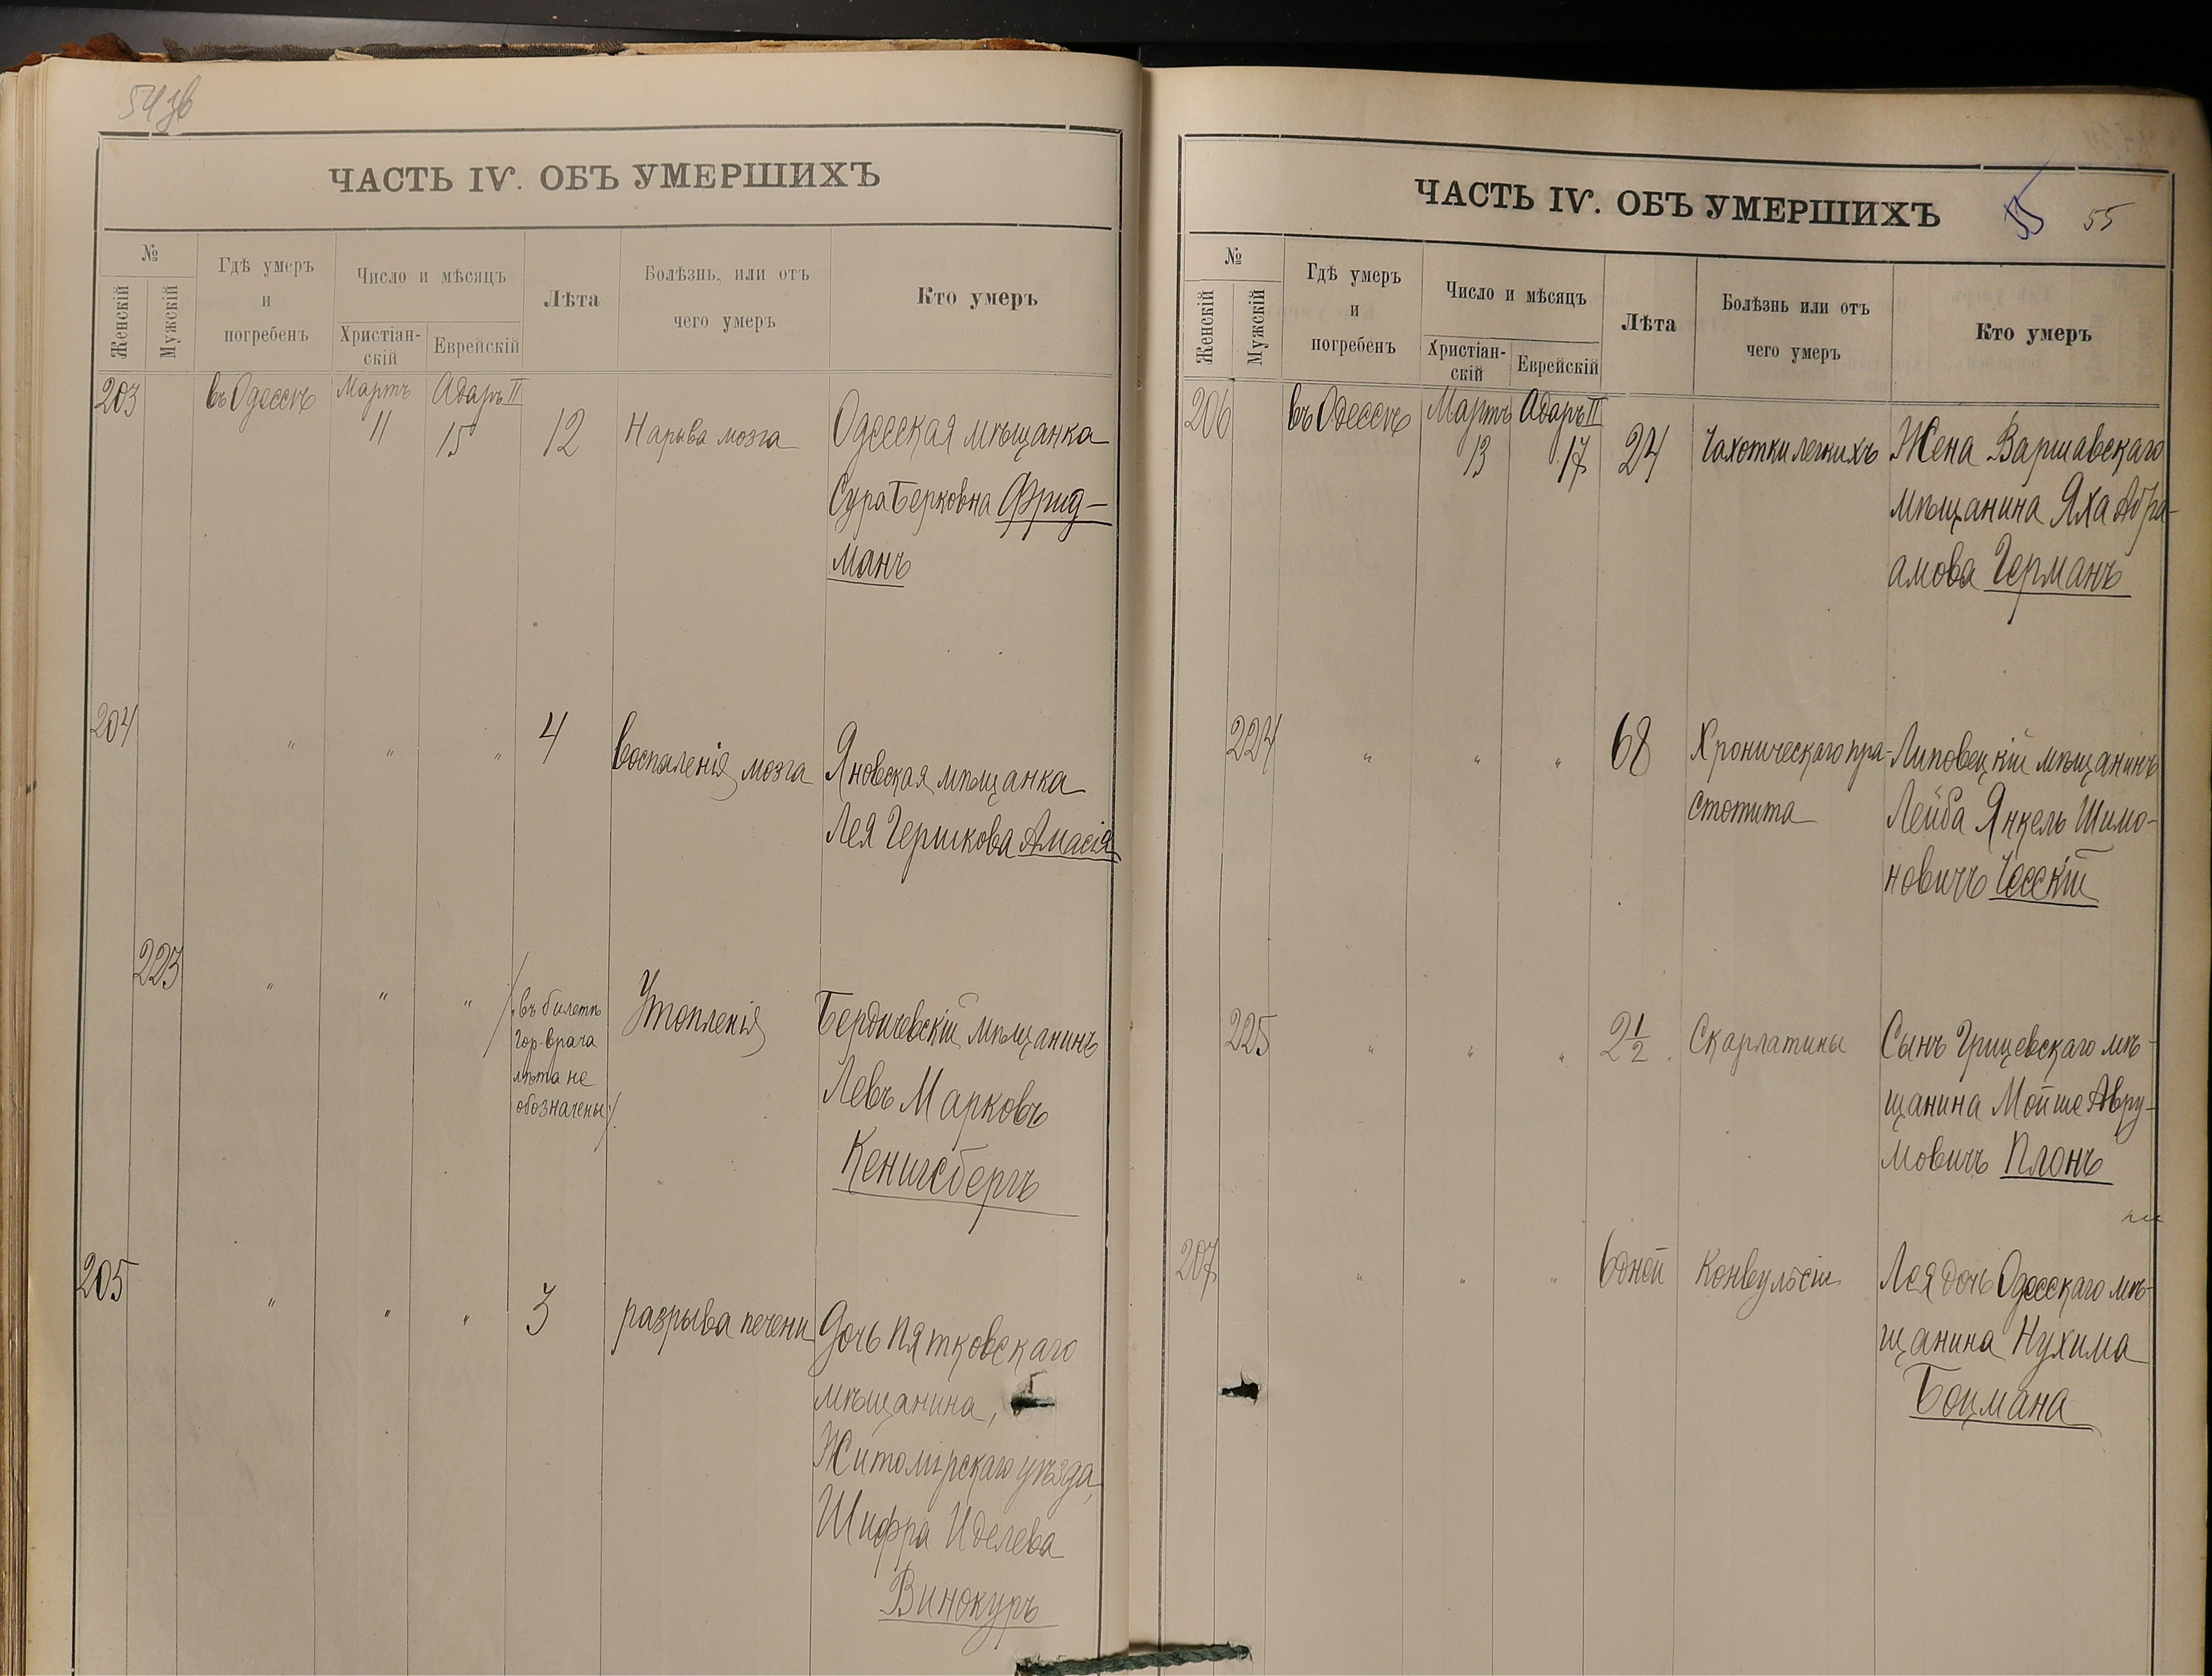 54 зв
ЧАСТЬ IV. ОБЪ УМЕРШИХЪ
№
Женскій
Мужскій
Гдѣ умеръ
и
погребенъ
Число и мѣсяцъ
Христіан-
скій
Еврейскій
Лѣта
Болѣзнь, или отъ
чего умеръ
Кто умеръ
203
въ Одессѣ
Мартъ
11
Адаръ II
15
12
Нарыва мозга
Одесская мѣщанка
Сура Берковна Фрид-
манъ
204
"
"
"
4
воспаленія мозга
Яновская мѣщанка
Лея Гершкова Амасія
223
"
"
"
/въ билетѣ
гор. врача
лѣта не
обозначены/.
Утопленія
Бердичевскій мѣщанинъ
Левъ Марковъ
Кенигсбергъ
205
"
"
"
3
разрыва печени
Дочь Пятковскаго
мѣщанина,
Житомірскаго уѣзда,
Шифра Иделева
Винокуръ
ЧАСТЬ IV. ОБЪ УМЕРШИХЪ
55
55
№
Женскій
Мужскій
Гдѣ умеръ
и
погребенъ
Число и мѣсяцъ
Христіан-
скій
Еврейскій
Лѣта
Болѣзнь или отъ
чего умеръ
Кто умеръ
206
въ Одессѣ
Мартъ
13
Адаръ II
17
24
Чахотки легкихъ
Жена Варшавскаго
мѣщанина Яха Абра-
амова Германъ
224
"
"
"
68
Хроническаго пра-
стотита
Липовецкій мѣщанинъ
Лейба Янкель Шимо-
новичъ Чесскій
225
"
"
"
2 1/2
Скарлатины
Сынъ Грицевскаго мѣ-
щанина Мойше Авру-
мовичъ Плонъ
207
"
"
"
6 дней
Конвульсіи
Лея дочь Одесскаго мѣ-
щанина Нухима
Боцмана